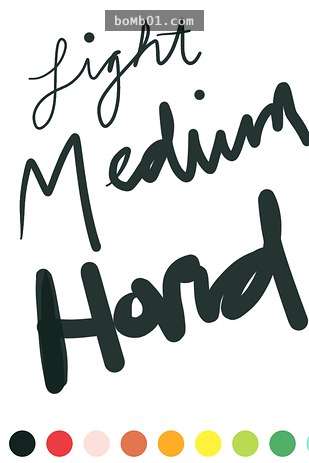 boMb01.com
Light
Medium
Hard